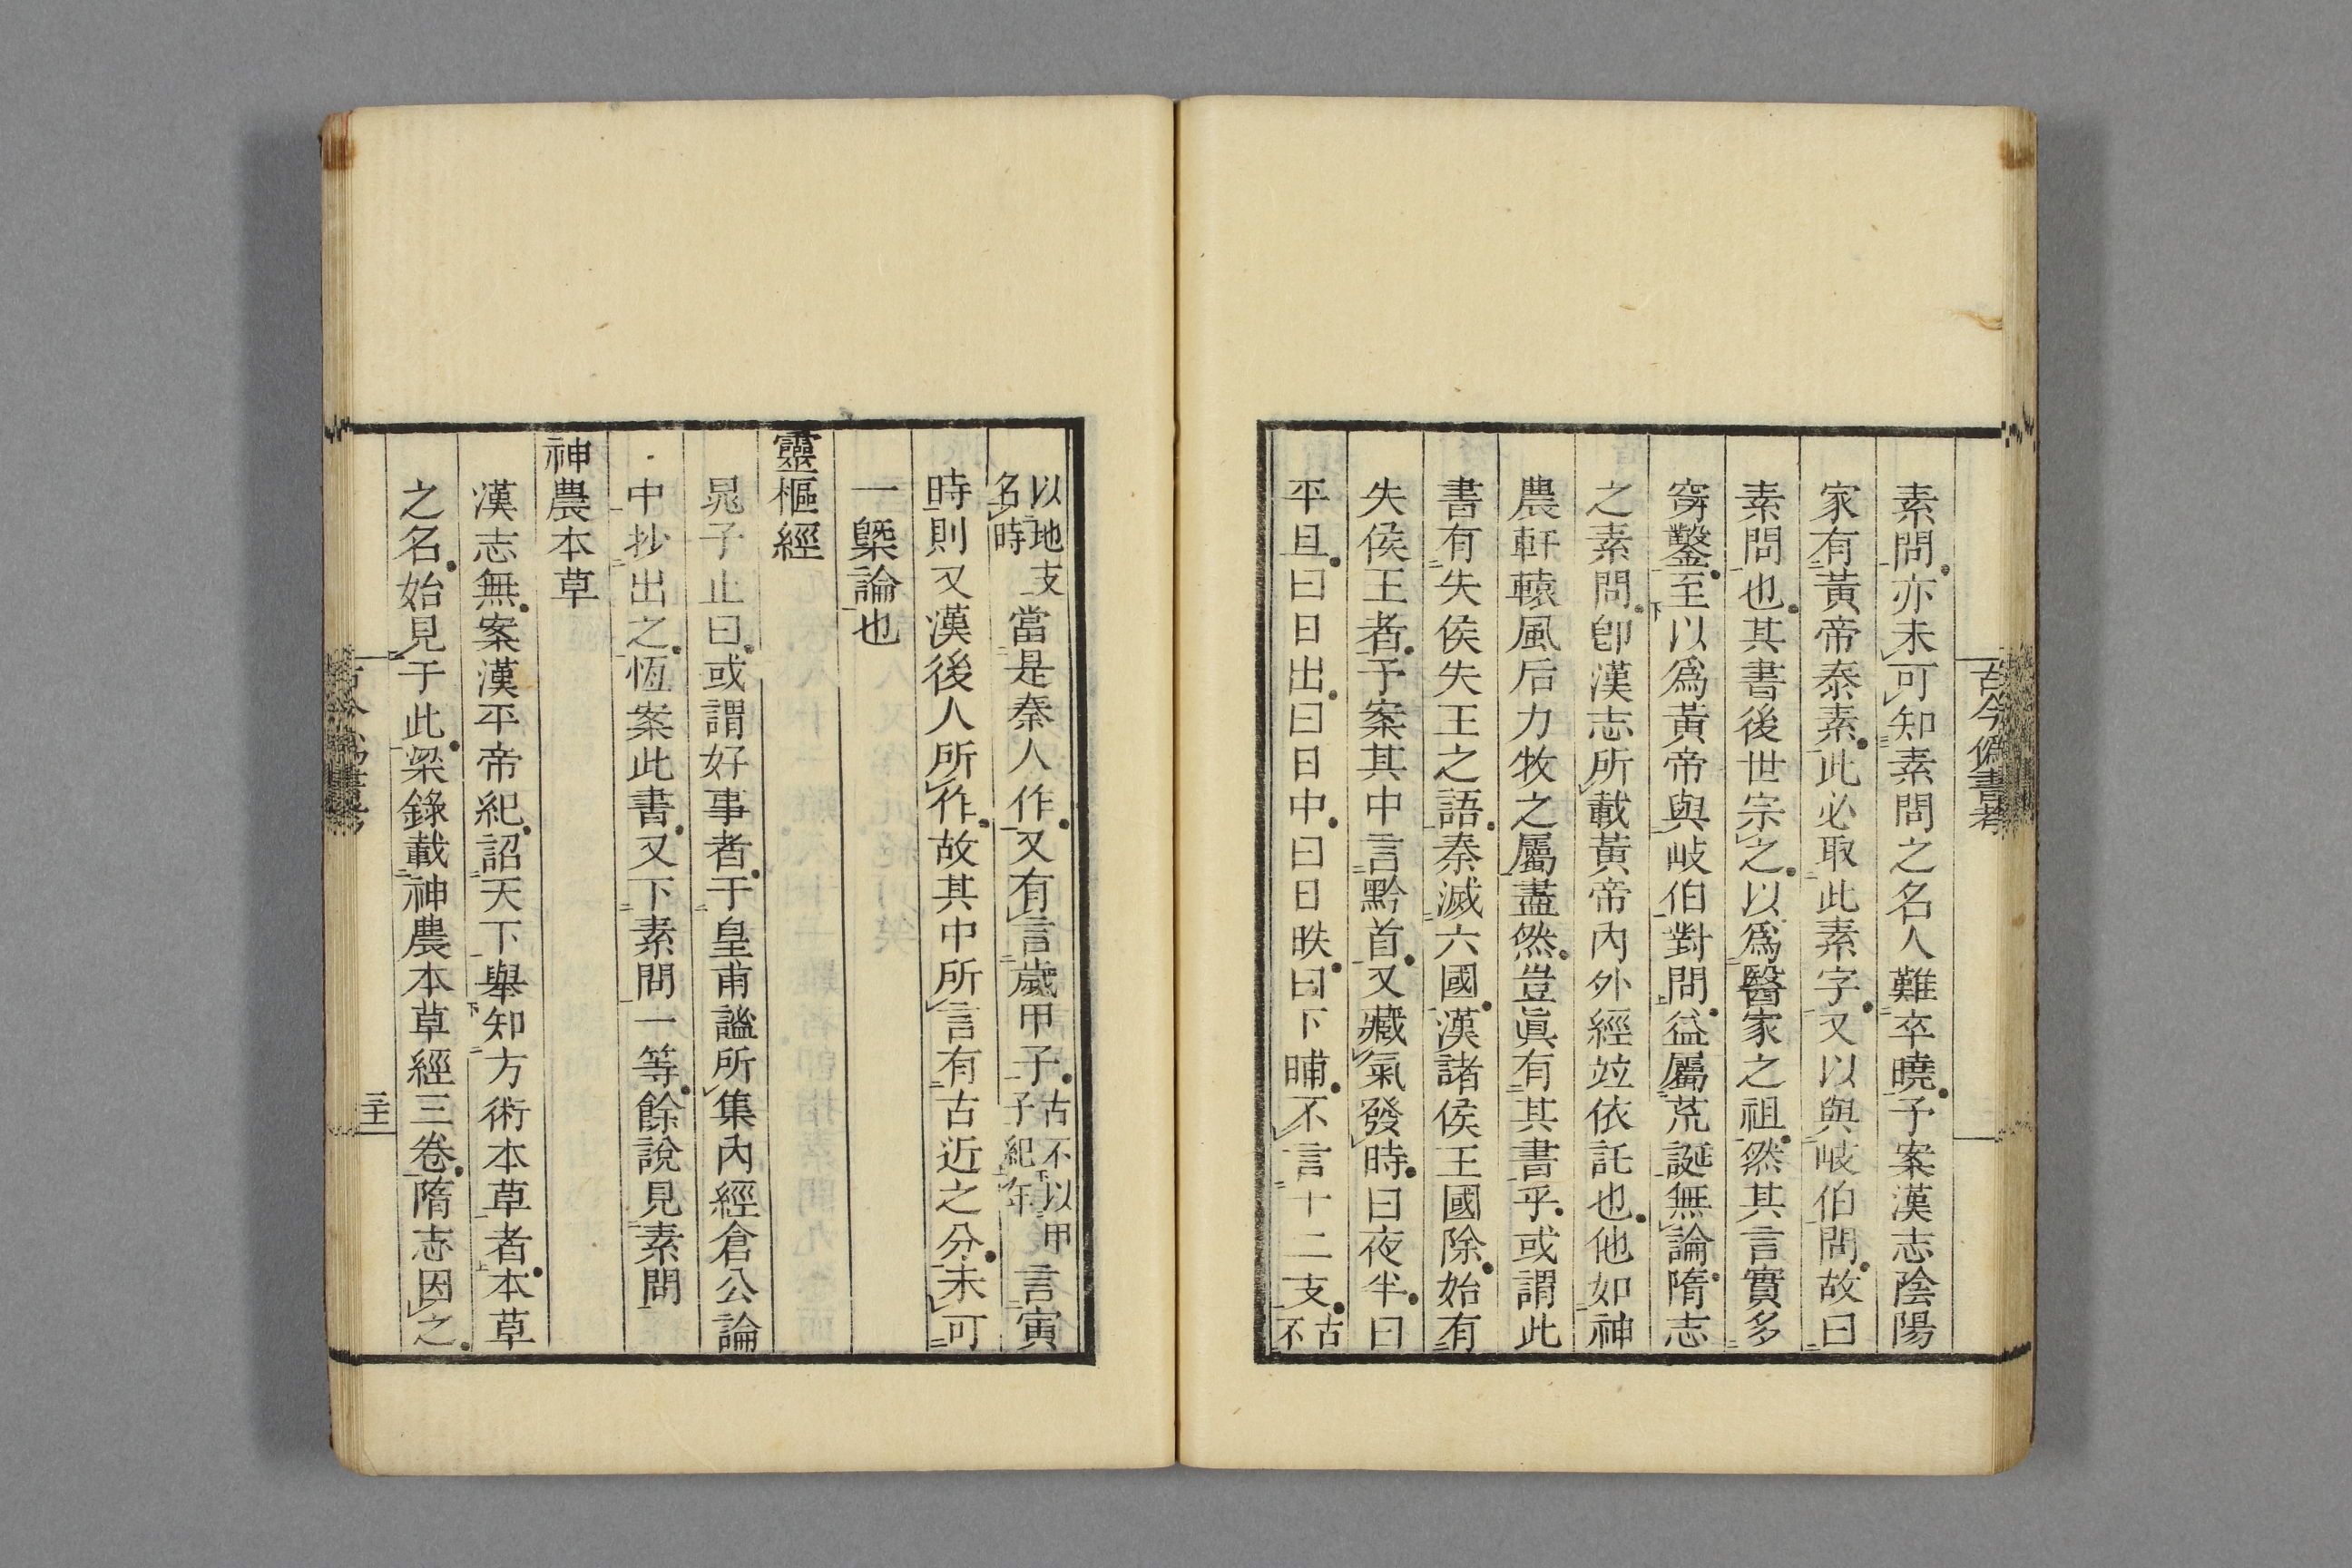 古今僞書考
素問亦未可知素問之名人難卒曉予案漢志陰陽
家有黃帝泰素此必取此素字又以與岐伯問故曰
素問也其書後世宗之以爲醫家之祖然其言實多
穿鑿至以爲黃帝與岐伯對問益屬荒誕無論隋志
之素問卽漢志所載黃帝內外經竝依託也他如神
農軒轅風后力牧之屬盡然豈眞有其書乎或謂此
書有失侯失王之語秦滅六國漢諸侯王國除始有
失侯王者予案其中言黔首又藏氣發時曰夜半曰
平旦曰日出曰日中曰日昳曰下晡不言十二支古不
以地支名時當是秦人作又有言歲甲子古不以甲子紀年言寅
時則又漢後人所作故其中所言有古近之分未可
一槩論也
靈樞經
晁子止曰或謂好事者于皇甫謐所集內經倉公論
中抄出之恆案此書又下素問一等餘說見素問
神農本草
漢志無案漢平帝紀詔天下舉知方術本草者本草
之名始見于此梁錄載神農本草經三卷隋志因之